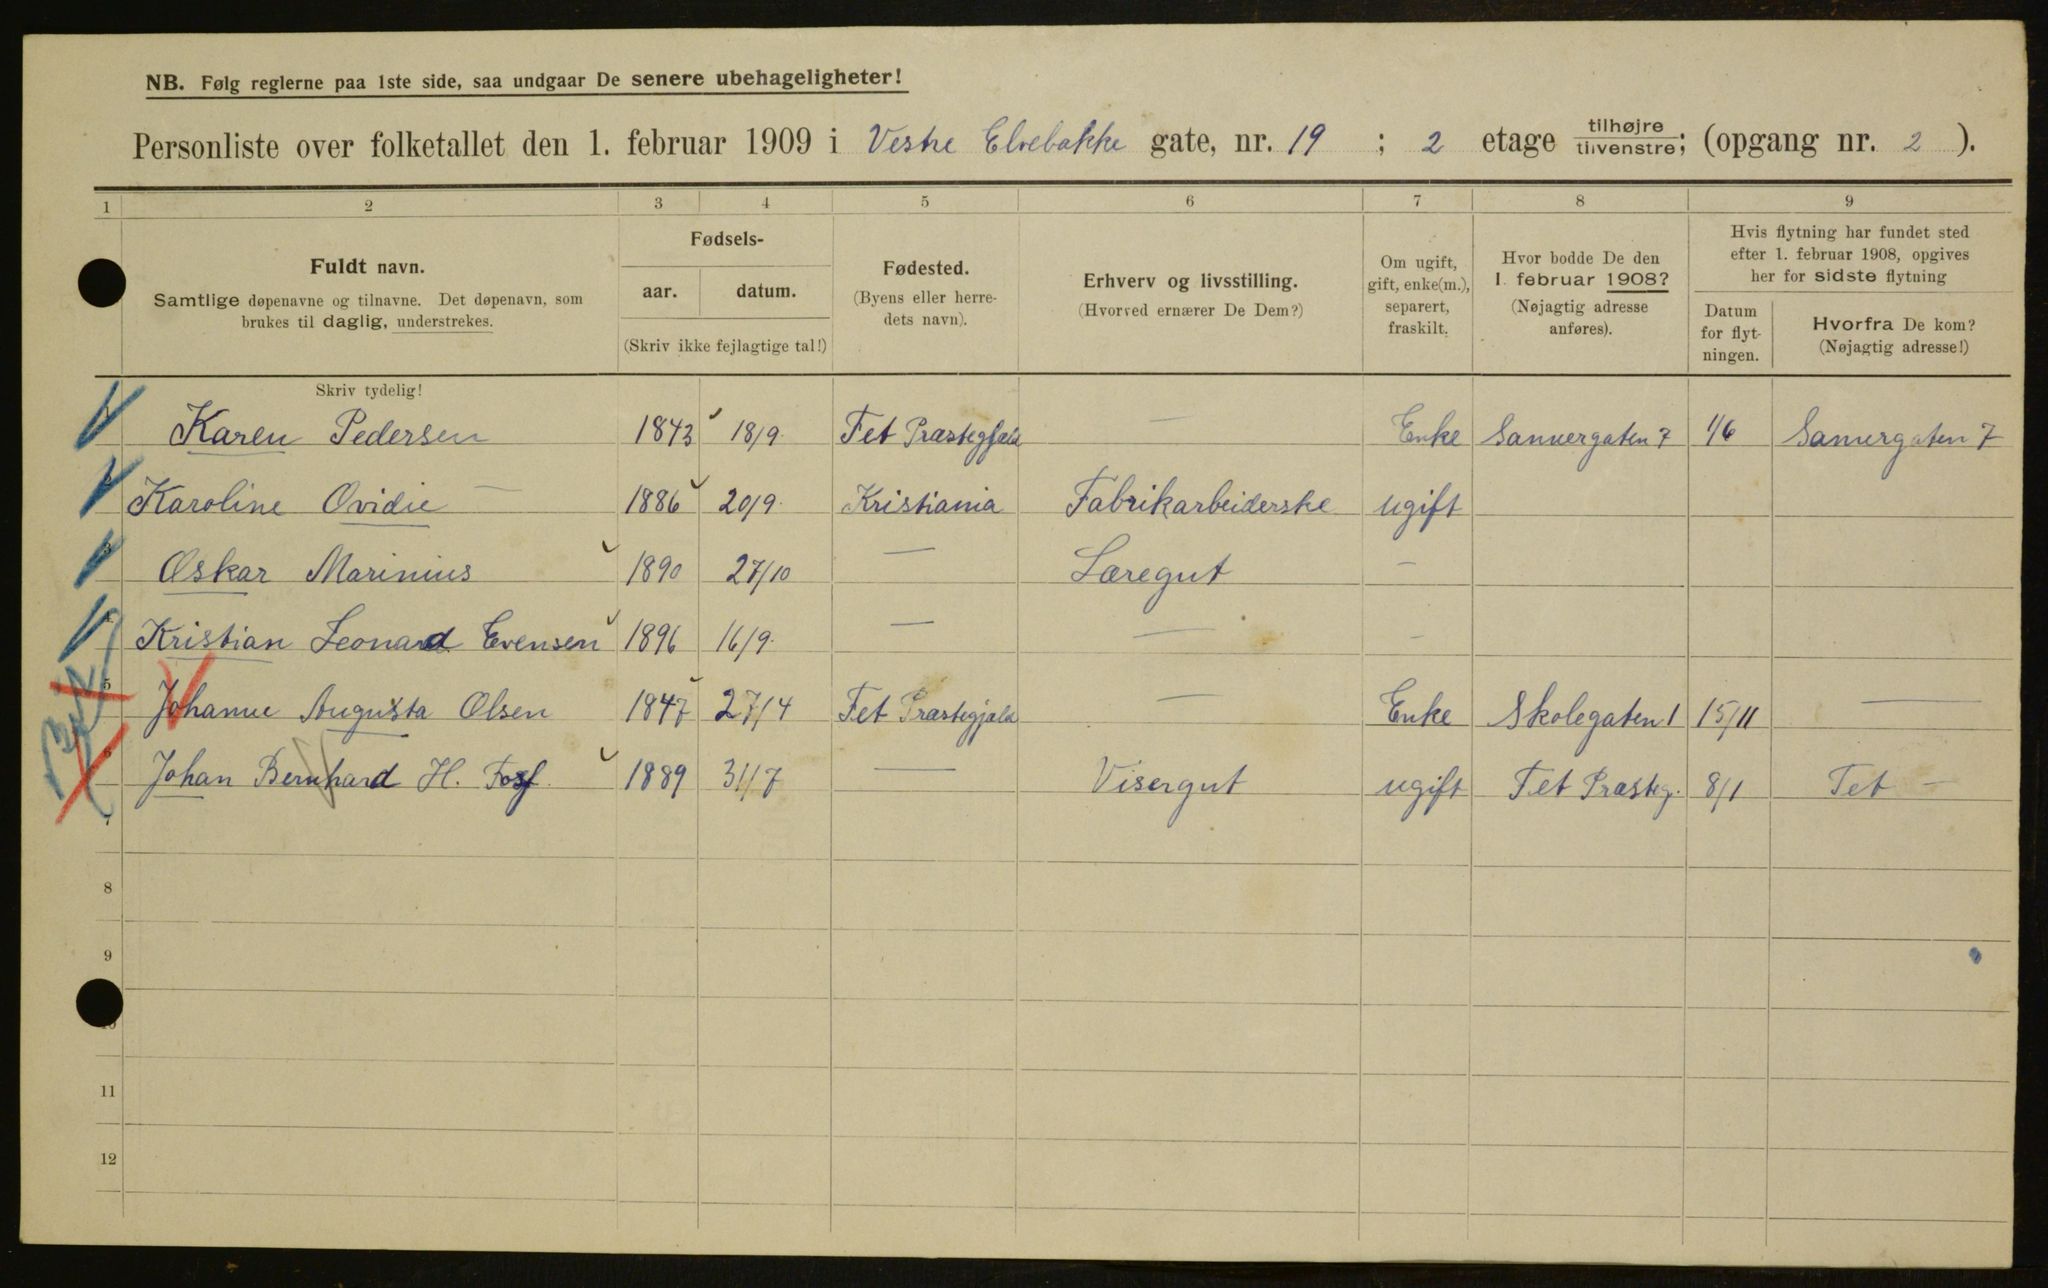 NB. Følg reglerne paa 1ste side, saa undgaar De senere ubehageligheter!
Personliste over folketallet den 1. februar 1909 i Vestre Elvebakke gate, nr. 19 ; 2 etage tilhøjre tilvenstre; (opgang nr. 2 ).
1 2 3 4 5 6 7 8 9
Fuldt navn.
Samtlige døpenavne og tilnavne. Det døpenavn, som
brukes til daglig, understrekes.
Fødsels-
aar. datum.
(Skriv ikke fejlagtige tal!)
Fødested.
(Byens eller herre-
dets navn).
Erhverv og livsstilling.
(Hvorved ernærer De Dem?)
Om ugift,
gift, enke(m.),
separert,
fraskilt.
Hvor bodde De den
1. februar 1908?
(Nøjagtig adresse
anføres).
Hvis flytning har fundet sted
efter 1. februar 1908, opgives
her for sidste flytning
Datum
for flyt-
ningen.
Hvorfra De kom?
(Nøjagtig adresse!)
Skriv tydelig!
Karen Pedersen 1843 18/9. Fet Præstegjæld — Enke Sannergaten 7 1/6 Sannergaten 7
Karoline Ovidie — 1886 20/9. Kristiania Fabrikarbeiderske ugift
3 Oskar Marinius 1890 27/10 — Læregut —
4 Kristian Leonard Evensen 1896 16/9. — — —
5 Johanne Augusta Olsen 1847 27/4 Fet Præstegjæld — Enke Skolegaten 1 15/11 —
6 Johan Bernhard H. Foss. 1889 31/7 — Visergut ugift Fet Præsteg. 8/1 Fet —
7
8
9
10
11
12